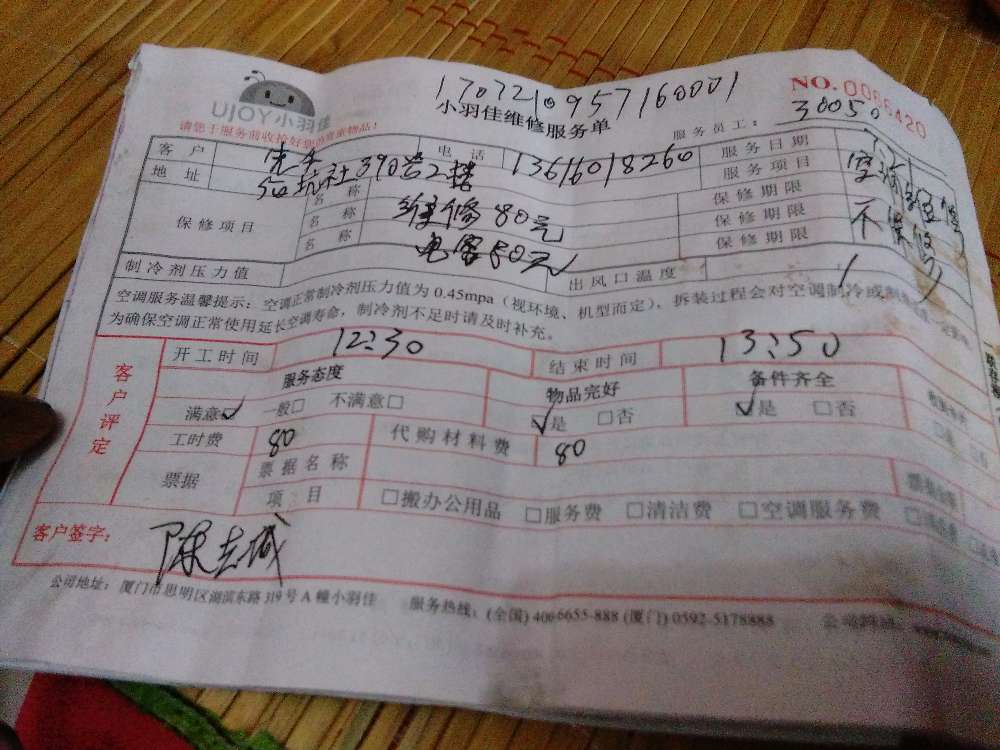 1707210957160001
UJOY小羽佳
小羽佳维修服务单
NO. 0066420
请您于服务前收捡好您的贵重物品!
服务员工: 30050
客户 先生 电话 13616018260 服务日期
地址 坑社390号2楼 服务项目 空调维修
保修项目 名称 维修80元 保修期限 不保修
名称 电容80元 保修期限
名称 保修期限
制冷剂压力值 出风口温度 /
空调服务温馨提示: 空调正常制冷剂压力值为 0.45mpa (视环境、机型而定), 拆装过程会对空调制冷或制热
为确保空调正常使用延长空调寿命, 制冷剂不足时请及时补充。
客户评定
开工时间 12:30 结束时间 13:50
服务态度 物品完好 备件齐全
满意☑ 一般□ 不满意□ ☑是 □否 ☑是 □否
工时费 80 代购材料费 80
票据 票据名称
项目 □搬办公用品 □服务费 □清洁费 □空调服务费
客户签字: 陈志诚
公司地址: 厦门市思明区湖滨东路 319 号 A 幢小羽佳 服务热线: (全国) 4066655-888 (厦门) 0592-5178888